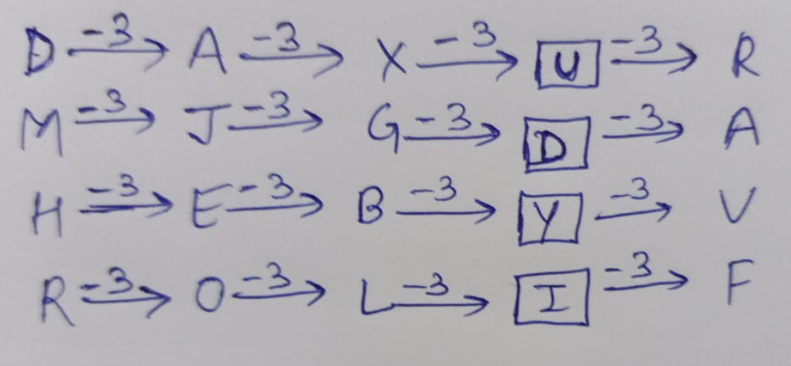 D -3→ A -3→ X -3→ U -3→ R
M -3→ J -3→ G -3→ D -3→ A
H -3→ E -3→ B -3→ Y -3→ V
R -3→ O -3→ L -3→ I -3→ F